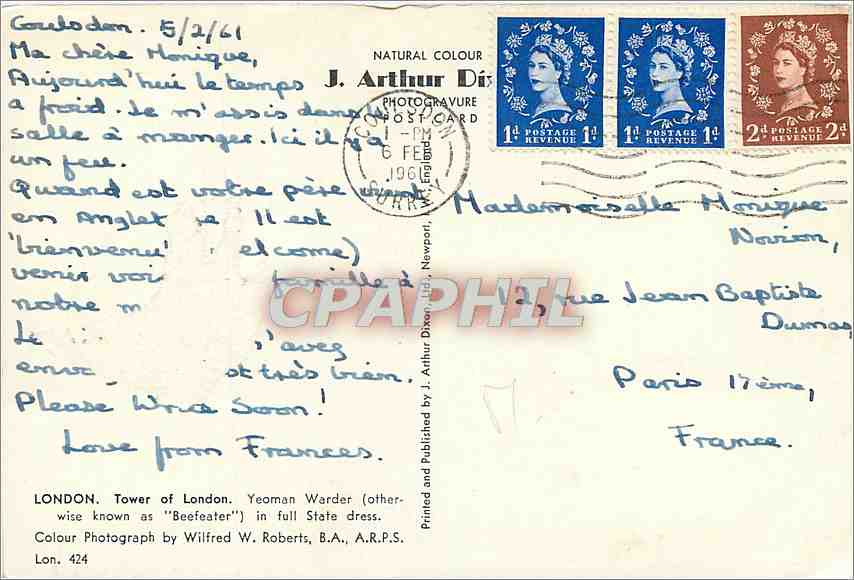 Coulsdon. 5/2/61
Ma chère Monique,
Aujourd'hui le temps
a froid. Je m'assis dans
salle à manger. Ici il y a
un feu.
Quand est votre père
en Anglet e Il est
'bienvenu' elcome)
venir voi famille à
notre m
Le 'avez
env st très bien.
Please Write Soon!
Love from Frances.
LONDON. Tower of London. Yeoman Warder (other-
wise known as "Beefeater") in full State dress.
Colour Photograph by Wilfred W. Roberts, B.A., A.R.P.S.
Lon. 424
NATURAL COLOUR
J. Arthur Dix
PHOTOGRAVURE
POST CARD
COULSDON
1 - PM
6 FEB
1961
SURREY
Printed and Published by J. Arthur Dixon, Ltd., Newport, England
1d POSTAGE REVENUE 1d
1d POSTAGE REVENUE 1d
2d POSTAGE REVENUE 2d
Mademoiselle Monique
Novion,
12, rue Jean Baptiste
Dumas,
Paris 17ème,
France.
CPAPHIL